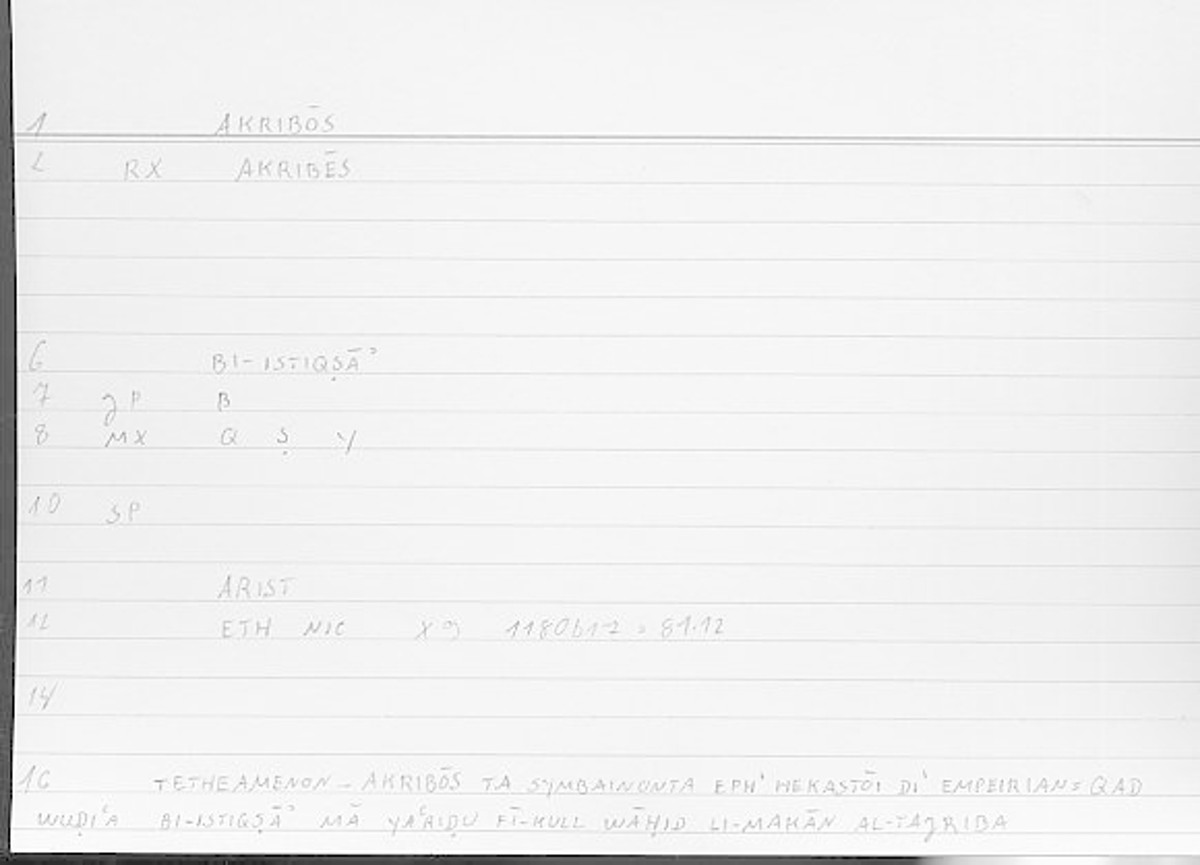 1 AKRIBŌS
2 RX AKRIBĒS
6 BI-ISTIQṢĀʾ
7 gP B
8 MX Q Ṣ Y
10 SP
11 ARIST
12 ETH NIC X9 1180b17 = 81.12
14
16 TETHEAMENON - AKRIBŌS TA SYMBAINONTA EPH' HEKASTŌI DI' EMPEIRIAN = QAD
WUḌIʿA BI-ISTIQṢĀʾ MĀ YAʿRIḌU FĪ-KULL WĀḤID LI-MAKĀN AL-TAgRIBA